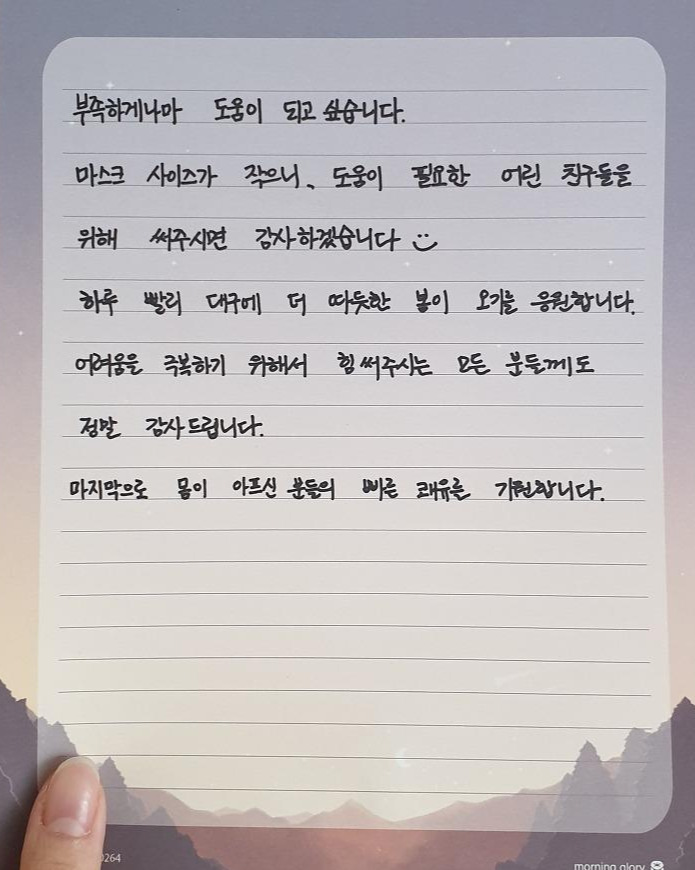 부족하게나마 도움이 되고 싶습니다.
마스크 사이즈가 작으니, 도움이 필요한 어린 친구들을
위해 써주시면 감사하겠습니다
하루 빨리 대구에 더 따듯한 봄이 오기를 응원합니다.
어려움을 극복하기 위해서 힘써주시는 모든 분들께도
정말 감사드립니다.
마지막으로 몸이 아프신 분들의 빠른 쾌유를 기원합니다.
0264
morning glory